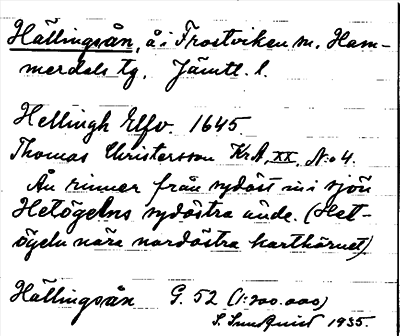 Hällingsån, å i Frostviken sn. Ham-
merdals tg. Jämtl. l.
Hellingh Elfv. 1645.
Thomas Christersson KrA, XX, N:o 4.
Ån rinner från sydöst in i sjön
Hetögelns sydöstra ände. (Het-
ögeln nära nordöstra karthörnet)
Hällingsån G. 52 (1:200.000)
S. Sundquist 1935.